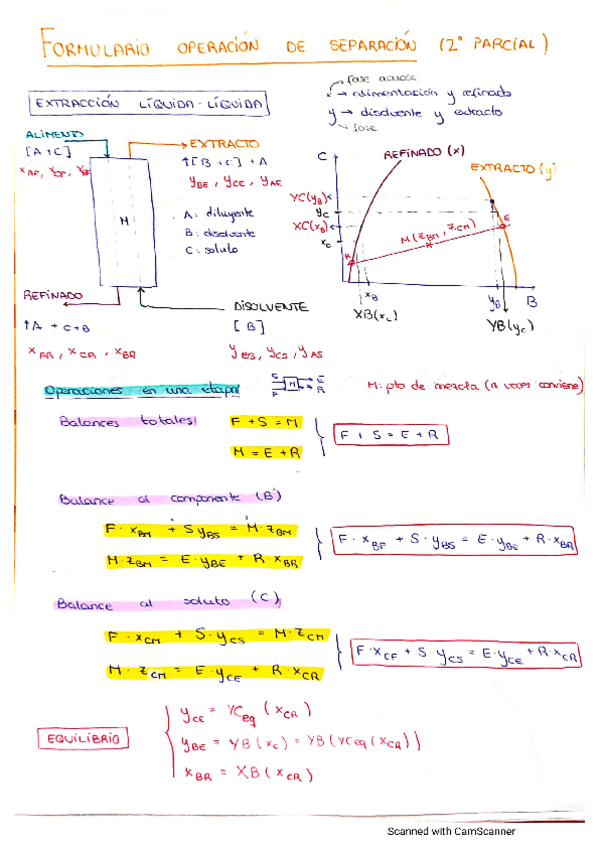 FORMULARIO OPERACIÓN DE SEPARACIÓN (2º PARCIAL)
fase acuosa
x → alimentación y refinado
y → disolvente y extracto
fase
EXTRACCIÓN LÍQUIDA-LÍQUIDA
ALIMENTO
[A+C]
EXTRACTO
↑[B+C]+A
y_BE, y_CE, y_AE
A: diluyente
B: disolvente
C: soluto
M
REFINADO
↑A + C+B
x_AR, x_CR, x_BR
DISOLVENTE
[B]
y_BS, y_CS, y_AS
C
REFINADO (x)
EXTRACTO (y)
YC(y_B)
y_C
XC(x_B)
x_C
M(z_BM, z_CM)
R
E
x_B
y_B
B
XB(x_C)
YB(y_C)
Operaciones en una etapa
S
F
M
E
R
M: pto de mezcla (a veces conviene)
Balances totales:
F + S = M
M = E + R
F + S = E + R
Balance al componente (B)
F·x_BM + S y_BS = M·z_BM
M·z_BM = E·y_BE + R·x_BR
F·x_BF + S·y_BS = E·y_BE + R·x_BR
Balance al soluto (C)
F·x_CM + S·y_CS = M·z_CM
M·z_CM = E·y_CE + R·x_CR
F·x_CF + S·y_CS = E·y_CE + R·x_CR
EQUILIBRIO
y_CE = YC_eq (x_CR)
y_BE = YB(x_C) = YB(YC_eq(x_CR))
x_BR = XB(x_CR)
Scanned with CamScanner